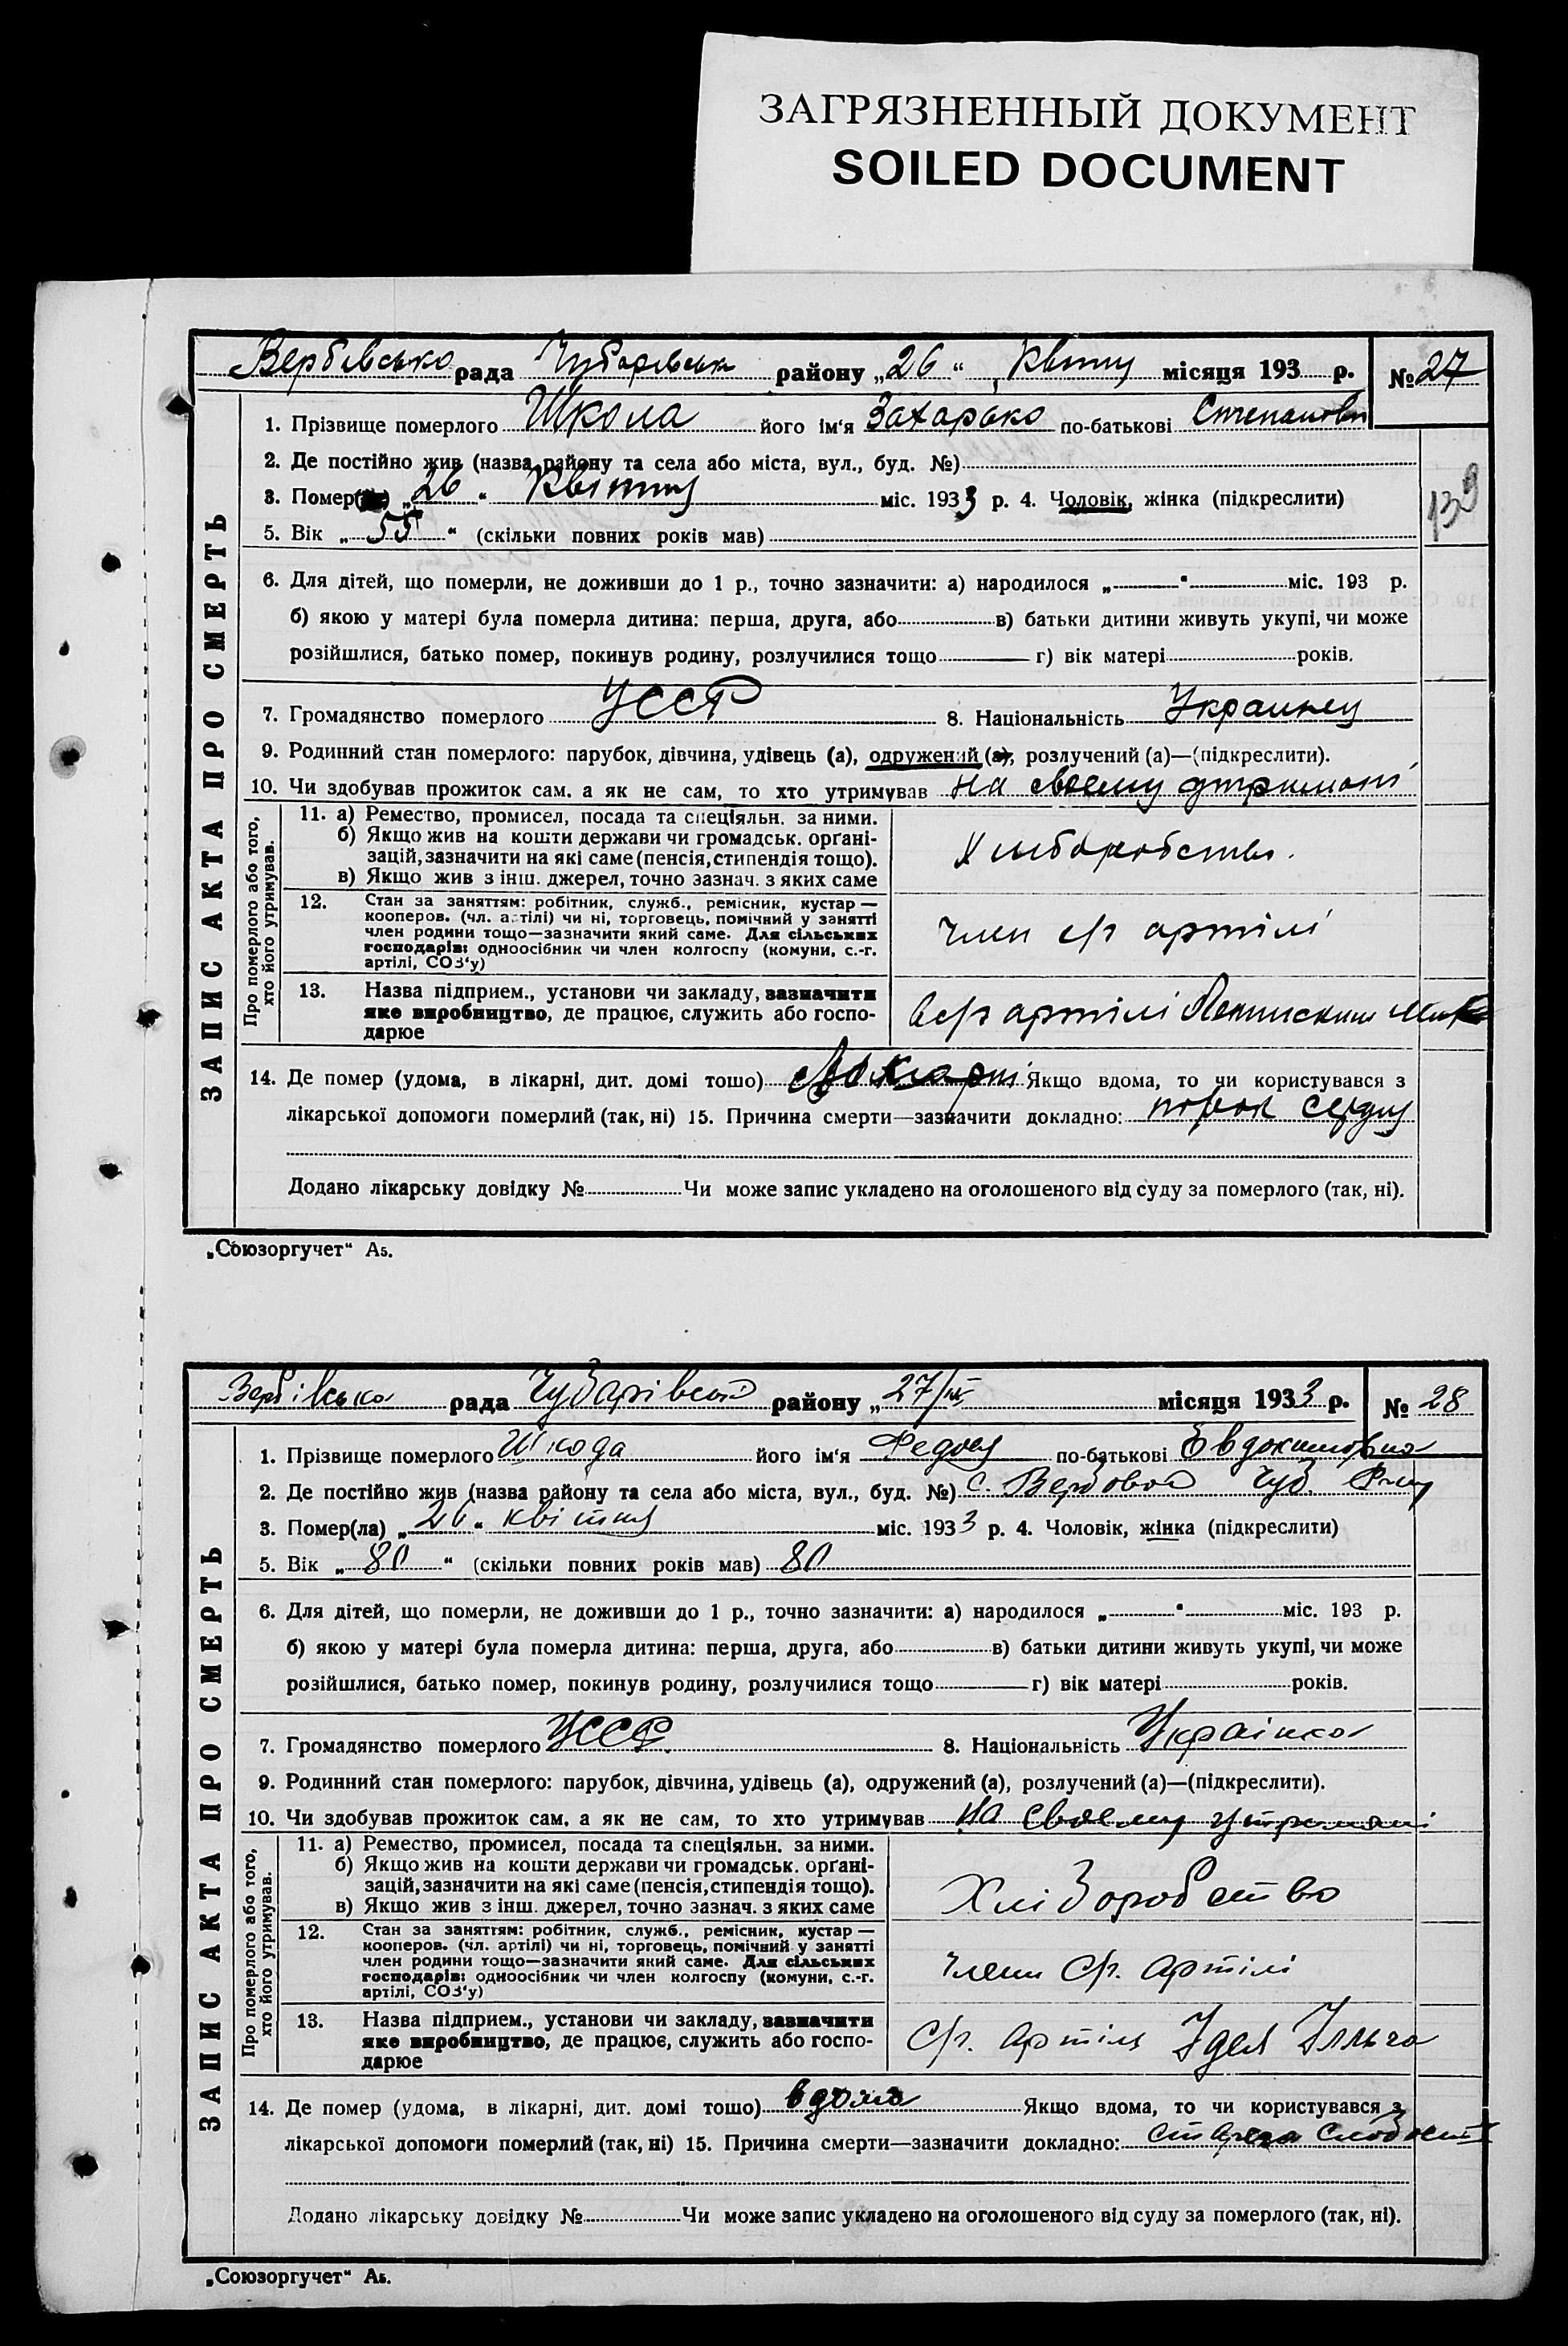 ЗАГРЯЗНЕННЫЙ ДОКУМЕНТ
SOILED DOCUMENT
Вербівсько рада Чубарівськ района „26“ Квітня місяця 193 р. № 27
ЗАПИС АКТА ПРО СМЕРТЬ
1. Прізвище померлого Школа його ім'я Захарько по-батькові Степанови
2. Де постійно жив (назва району та села або міста, вул., буд. №)
3. Помер „26“ Квітня міс. 1933 р. 4. Чоловік, жінка (підкреслити)
139
5. Вік „55“ (скільки повних років мав)
6. Для дітей, що померли, не доживши до 1 р., точно зазначити: а) народилося „—“ міс. 193 р.
б) якою у матері була померла дитина: перша, друга, або в) батьки дитини живуть укупі, чи може
розійшлися, батько помер, покинув родину, розлучилися тощо г) вік матері років.
7. Громадянство померлого УССР 8. Національність Украинец
9. Родинний стан померлого: парубок, дівчина, удівець (а), одружений (а), розлучений (а)—(підкреслити).
10. Чи здобував прожиток сам, а як не сам, то хто утримував на своему
Про померлого або того, хто його утримував.
11. а) Ремество, промисел, посада та спеціяльн. за ними.
б) Якщо жив на кошти держави чи громадськ. орґані-
зацій, зазначити на які саме (пенсія, стипендія тощо).
в) Якщо жив з інш. джерел, точно зазнач. з яких саме
Хлиборобство.
12. Стан за заняттям: робітник, служб., ремісник, кустар—
кооперов. (чл. артілі) чи ні, торговець, помічний у занятті
член родини тощо—зазначити який саме. Для сільських
господарів: одноосібник чи член колгоспу (комуни, с.-г.
артілі, СОЗ'у)
член с/г артілі
13. Назва підприєм., установи чи закладу, зазначити
яке виробництво, де працює, служить або госпо-
дарює
в с/г артілі
14. Де помер (удома, в лікарні, дит. домі тошо) Якщо вдома, то чи користувався з
лікарської допомоги померлий (так, ні) 15. Причина смерти—зазначити докладно: порок сердця
Додано лікарську довідку № Чи може запис укладено на оголошеного від суду за померлого (так, ні).
„Союзоргучет“ А5.
Вербівська рада Чубарівськ району „27/IV місяця 1933 р. № 28
ЗАПИС АКТА ПРО СМЕРТЬ
1. Прізвище померлого Шкода його ім'я Федося по-батькові Евдокимовна
2. Де постійно жив (назва району та села або міста, вул., буд. №) с. Вербовой Чуб. Р-ну
3. Помер(ла) „26“ квітня міс. 1933 р. 4. Чоловік, жінка (підкреслити)
5. Вік „80“ (скільки повних років мав) 80
6. Для дітей, що померли, не доживши до 1 р., точно зазначити: а) народилося „—“ міс. 193 р.
б) якою у матері була померла дитина: перша, друга, або в) батьки дитини живуть укупі, чи може
розійшлися, батько помер, покинув родину, розлучилися тощо г) вік матері років.
7. Громадянство померлого УССР 8. Національність Українка
9. Родинний стан померлого: парубок, дівчина, удівець (а), одружений (а), розлучений (а)—(підкреслити).
10. Чи здобував прожиток сам, а як не сам, то хто утримував на своему утримані
Про померлого або того, хто його утримував.
11. а) Ремество, промисел, посада та спеціяльн. за ними.
б) Якщо жив на кошти держави чи громадськ. орґані-
зацій, зазначити на які саме (пенсія, стипендія тощо).
в) Якщо жив з інш. джерел, точно зазнач. з яких саме
Хліборобство
12. Стан за заняттям: робітник, служб., ремісник, кустар—
кооперов. (чл. артілі) чи ні, торговець, помічний у занятті
член родини тощо—зазначити який саме. Для сільських
господарів: одноосібник чи член колгоспу (комуни, с.-г.
артілі, СОЗ'у)
член С/г. артілі
13. Назва підприєм., установи чи закладу, зазначити
яке виробництво, де працює, служить або госпо-
дарює
С/г. артіль Ідея Ілліча
14. Де помер (удома, в лікарні, дит. домі тошо) вдома Якщо вдома, то чи користувався з
лікарської допомоги померлий (так, ні) 15. Причина смерти—зазначити докладно: Старега слабость
Додано лікарську довідку № Чи може запис укладено на оголошеного від суду за померлого (так, ні).
„Союзоргучет“ А5.